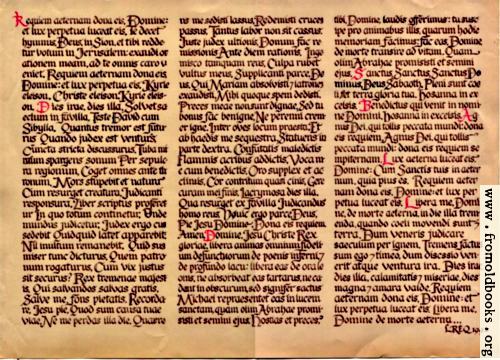 Requiem aeternam dona eis, Domine:
et lux perpetua luceat eis, te decet
hymnus, Deus, in Sion, et tibi redde
tur votum in Jerusalem: exaudi or
ationem meam, ad te omnis caro v
eniet. Requiem aeternam dona eis,
Domine: et lux perpetua eis. Kyrie
eleison, Christe eleison, Kyrie eleis
on. Dies irae, dies illa, Solvet sa
eclum in favilla, Teste David cum
Sibylla, Quantus tremor est futu
rus Quando judex est venturus
Cuncta stricte discussurus, Tuba mi
rum spargens sonum Per sepulc
ra regionum, Coget omnes ante th
ronum, Mors stupebit et natura
Cum resurget creatura, Judicanti
responsura, Liber scriptus proferet
ur In quo totum continetur, Unde
mundus judicetur. Judex ergo cum
sedebit Quidquid latet apparebit
Nil inultum remanebit, Quid sum
miser tunc dicturus, Quem patro
num rogaturus, Cum vix justus
sit securus? Rex tremenae majest
is Qui salvandos salvas gratis,
Salve me, fons pietatis. Recorda
re, Jesu pie, Quod sum causa tuae
viae, Ne me perdas illa die. Quaere
ns me sedisti lassus, Redemisti cruces
passus, Tantus labor non sit cassus.
Juste judex ultionis Donum fac re
missionis Ante diem rationis. Inge
misco tamquam reus, Culpa rubet
vultus meus, Supplicanti parce De
us. Qui Mariam absolvisti, latronem
exaudisti, Mihi quoque spem dedisti.
Preces meae non sunt dignae, Sed tu
bonus fac benigne, Ne perenni crem
er igne. Inter oves locum praesta, Et
ab haedis me sequestra, Statuens in
parte dextra. Confutatis maledictis
Flammis acribus addictis, Voca m
e cum benedictis. Oro supplex et ac
clinis, Cor contritum quasi cinis, Gere
curam mei finis, Lacrymosa dies illa,
Qua resurget ex favilla Judicandus
homo reus, Huic ergo parce Deus,
Pie Jesu Domine, Dona eis requiem
Amen. Domine, Jesu Christe Rex
gloriae, libera animas omnium fideli
um defunctorum de poenis inferni, et
de profundo lacu: libera eas de ore le
onis, ne absorbeat eas tartarus, ne ca
dant in obscurum, sed signifer sactus
Michael repraesentet eas in lucem
sanctam, quam olim Abrahae promi
sisti et semini ejus. Hostias et preces
tibi, Domine, laudis offerimus: tu susc
ipe pro animabus illis, quarum hodie
memoriam facimus: fac eas, Domine,
de morte transire ad vitam. Quam
olim Abrahae promisisti et semini
ejus. Sanctus, Sanctus, Sanctus Do
minus, Deus Sabaoth, Pleni sunt coe
li et terra gloria tua. Hosanna in ex
celsis. Benedictus qui venit in nomi
ne Domini, hosanna in excelsis. Ag
nus Dei, qui tollis peccata mundi: dona
eis requiem, Agnus Dei, qui tollis
peccata mundi: dona eis requiem se
mpiternam. Lux aeterna luceat eis,
Domine: Cum Sanctis tuis in aeter
num, quia pius es. Requiem aeter
nam dona eis, Domine: et lux per
petua luceat eis. Libera me, Domi
ne, de morte aeterna, in die illa trem
enda, quando coeli movendi sunt et
terra, Dum veneris judicare
saeculum per ignem. Tremens factus
sum ego, et timeo, dum discussio ven
erit atque ventura ira. Dies irae,
dies illa, calamitatis et miseriae, dies
magna et amara valde. Requiem
aeternam dona eis, Domine: et
lux perpetua luceat eis. Libera me,
Domine de morte aeterna...
www.fromoldbooks.org